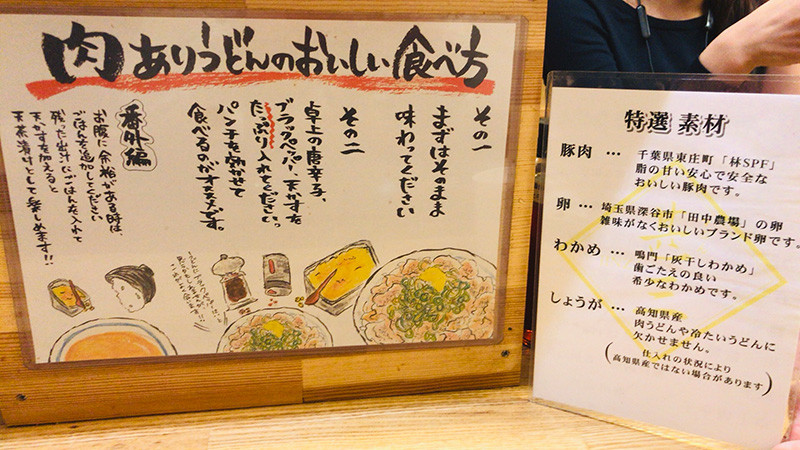 肉ありうどんのおいしい食べ方
その一
まずはそのまま
味わってください
その二
卓上の唐辛子、
ブラックペッパー、天かすを
たっぷり入れてください。
パンチを効かせて
食べるのがオススメです。
番外編
お腹に余裕がある時は、
ごはんを追加してください
残った出汁にごはんを入れて
天かすを加えると
天茶漬けとして楽しめます!!
特選 素材
豚肉 … 千葉県東庄町「林SPF」
脂の甘い安心で安全な
おいしい豚肉です。
卵 … 埼玉県深谷市「田中農場」の卵
雑味がなくおいしいブランド卵です。
わかめ … 鳴門「灰干しわかめ」
歯ごたえの良い
希少なわかめです。
しょうが… 高知県産
肉うどんや冷たいうどんに
欠かせません。
(仕入れの状況により
高知県産ではない場合があります)